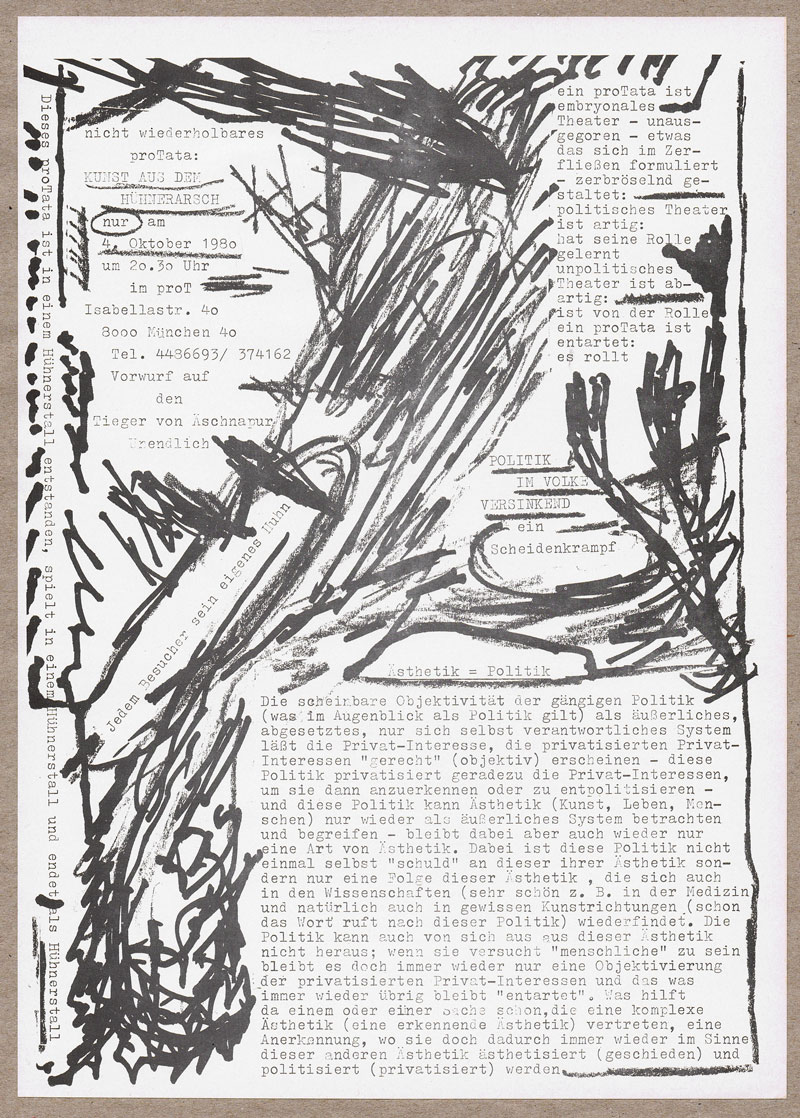 Dieses proTata ist in einem Hühnerstall entstanden, spielt in einem Hühnerstall und endet als Hühnerstall
nicht wiederholbares
proTata:
KUNST AUS DEM
HÜHNERARSCH
nur am
4. Oktober 198o
um 2o.3o Uhr
im proT
Isabellastr. 4o
8ooo München 4o
Tel. 4486693/ 374162
Vorwurf auf
den
Tieger von Äschnapur
Unendlich
Jedem Besucher sein eigenes Huhn
ein proTata ist
embryonales
Theater - unaus-
gegoren - etwas
das sich im Zer-
fließen formuliert
- zerbröselnd ge-
staltet:
politisches Theater
ist artig:
hat seine Rolle
gelernt
unpolitisches
Theater ist ab-
artig:
ist von der Rolle
ein proTata ist
entartet:
es rollt
POLITIK
IM VOLKE
VERSINKEND
ein
Scheidenkrampf
Ästhetik = Politik
Die scheinbare Objektivität der gängigen Politik
(was im Augenblick als Politik gilt) als äußerliches,
abgesetztes, nur sich selbst verantwortliches System
läßt die Privat-Interesse, die privatisierten Privat-
Interessen "gerecht" (objektiv) erscheinen - diese
Politik privatisiert geradezu die Privat-Interessen,
um sie dann anzuerkennen oder zu entpolitisieren -
und diese Politik kann Ästhetik (Kunst, Leben, Men-
schen) nur wieder als äußerliches System betrachten
und begreifen - bleibt dabei aber auch wieder nur
eine Art von Ästhetik. Dabei ist diese Politik nicht
einmal selbst "schuld" an dieser ihrer Ästhetik son-
dern nur eine Folge dieser Ästhetik , die sich auch
in den Wissenschaften (sehr schön z. B. in der Medizin
und natürlich auch in gewissen Kunstrichtungen (schon
das Wort ruft nach dieser Politik) wiederfindet. Die
Politik kann auch von sich aus aus dieser Ästhetik
nicht heraus; wenn sie versucht "menschliche" zu sein
bleibt es doch immer wieder nur eine Objektivierung
der privatisierten Privat-Interessen und das was
immer wieder übrig bleibt "entartet". Was hilft
da einem oder einer Sache schon,die eine komplexe
Ästhetik (eine erkennende Ästhetik) vertreten, eine
Anerkennung, wo sie doch dadurch immer wieder im Sinne
dieser anderen Ästhetik ästhetisiert (geschieden) und
politisiert (privatisiert) werden